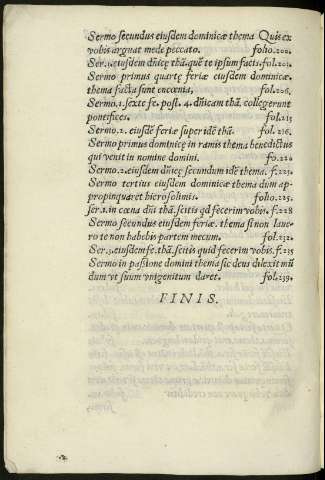 Sermo secundus eiusdem dominicæ thema Quis ex
vobis arguat me de peccato. folio.200.
Ser.1.eiusdem dn̄icę thā. quē te ipsum facis. fol.201.
Sermo primus quartę feriæ eiusdem dominicæ.
thema facta sunt encœnia. fol.206.
Sermo.1.sexte fe. post. 4. dn̄icam thā. collegerunt
pontifices. fol.215
Sermo.2. eiusdē feriæ super idē thā. fol. 216.
Sermo primus dominicę in ramis thema benedictus
qui venit in nomine domini. fo.220
Sermo.2.eiusdem dn̄icę secundum idē thema. f.223.
Sermo tertius eiusdem dominicæ thema dum ap-
propinquaret hierosolimis. folio.225.
ser.1.in cœna dn̄i thā. scitis qd fecerim vobis. f.228
Sermo secundus eiusdem feriæ. thema si non laue-
ro te non habebis partem mecum. fol.232.
Ser.3.eiusdem fe. thā. scitis quid fecerim vobis. f.235
Sermo in passione domini thema sic deus dilexit mū
dum vt suum vnigenitum daret. fol.239.
FINIS.